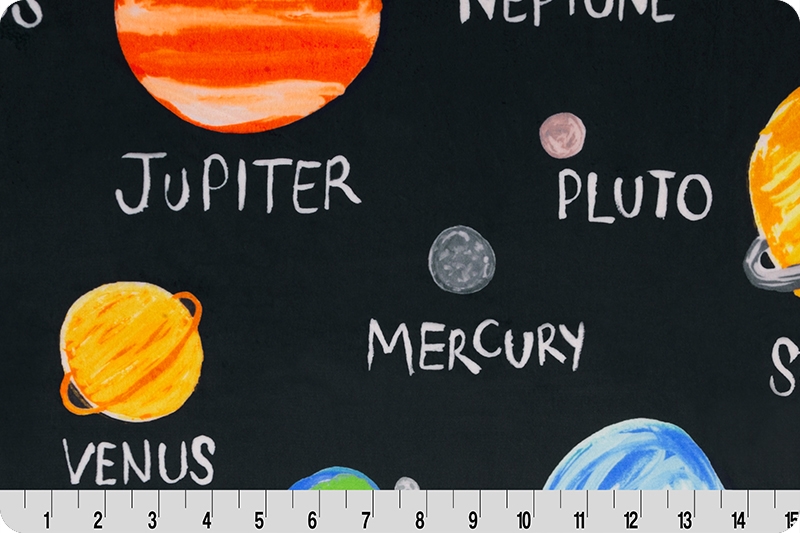 S
NEPTUNE
JUPITER
PLUTO
MERCURY
S
VENUS
1 2 3 4 5 6 7 8 9 10 11 12 13 14 15